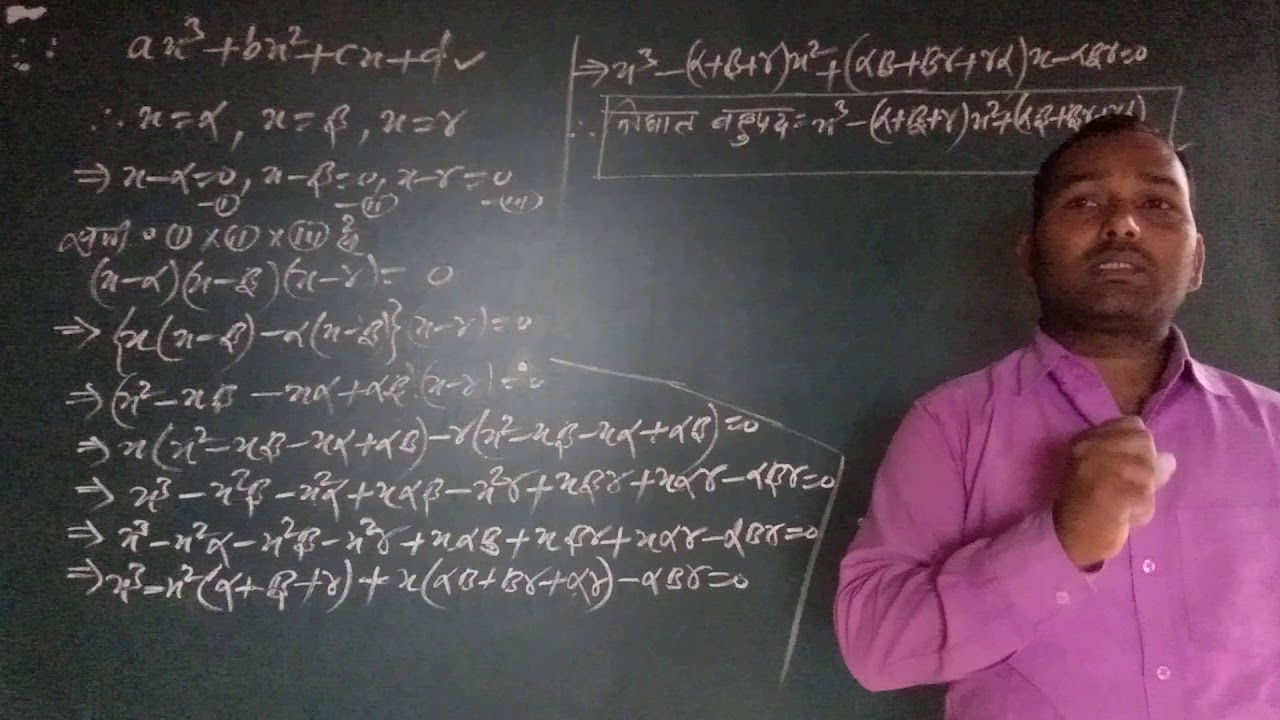 ax³+bx²+cx+d ✓
∴ x=α, x=β, x=γ
⇒ x-α=0, x-β=0, x-γ=0
-(i) -(ii) -(iii)
(i) × (ii) × (iii) से
(x-α)(x-β)(x-γ)= 0
⇒ {x(x-β)-α(x-β)}(x-γ)=0
⇒ (x²-xβ-xα+αβ)(x-γ)=0
⇒ x(x²-xβ-xα+αβ)-γ(x²-xβ-xα+αβ)=0
⇒ x³-x²β-x²α+xαβ-x²γ+xβγ+xαγ-αβγ=0
⇒ x³-x²α-x²β-x²γ+xαβ+xβγ+xαγ-αβγ=0
⇒ x³-x²(α+β+γ)+x(αβ+βγ+αγ)-αβγ=0
⇒ x³-(α+β+γ)x²+(αβ+βγ+γα)x-αβγ=0
∴ त्रिघात बहुपद=x³-(α+β+γ)x²+(αβ+βγ+γα)